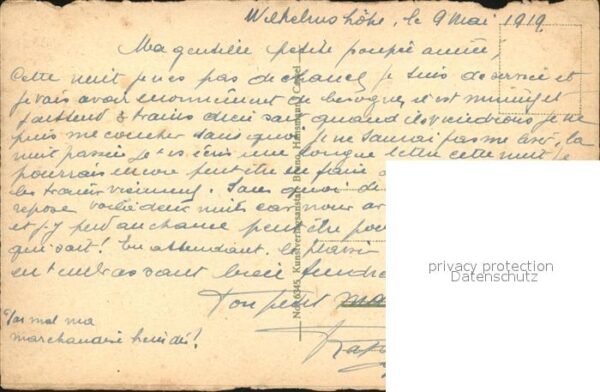 Wilhelmshöhe, le 9 Mai 1919
Ma gentille petite poupée aimée,
Cette nuit je n'ai pas de chance, je suis de service et
je vais avoir énormément de besogne, il est minuit et
j'attend 3 trains dieu sait quand ils viendrons, je ne
puis me coucher sans quoi je ne saurai pas me lever, la
nuit passée je t'ai écris une longue lettre cette nuit je
pourrais encore peut être en faire
les trains viennent. Sans quoi de
repose voilà deux nuits
et j'y perd au change peut être pou
qui sait! En attendant le plaisir
en t'embrassant bien tendre
Ton petit
Pas mal ma
marchandise hein dis!
No. 6345 Kunstverlagsanstalt Bruno Hansmann, Cassel
privacy protection
Datenschutz